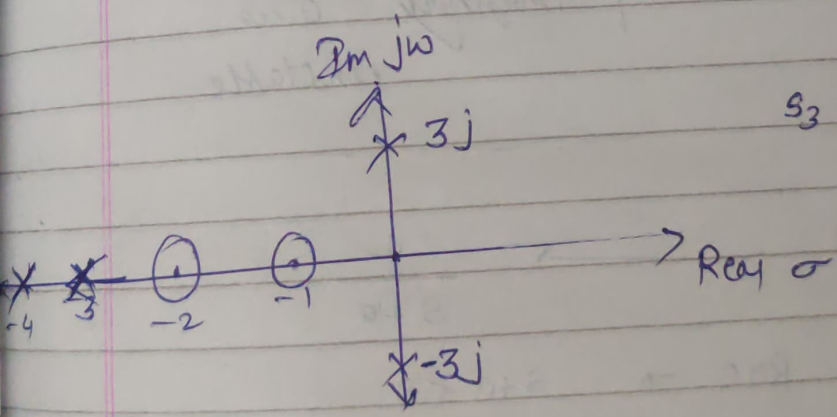 Im jω
3j
S3
Real σ
-4
-3
-2
-1
-3j